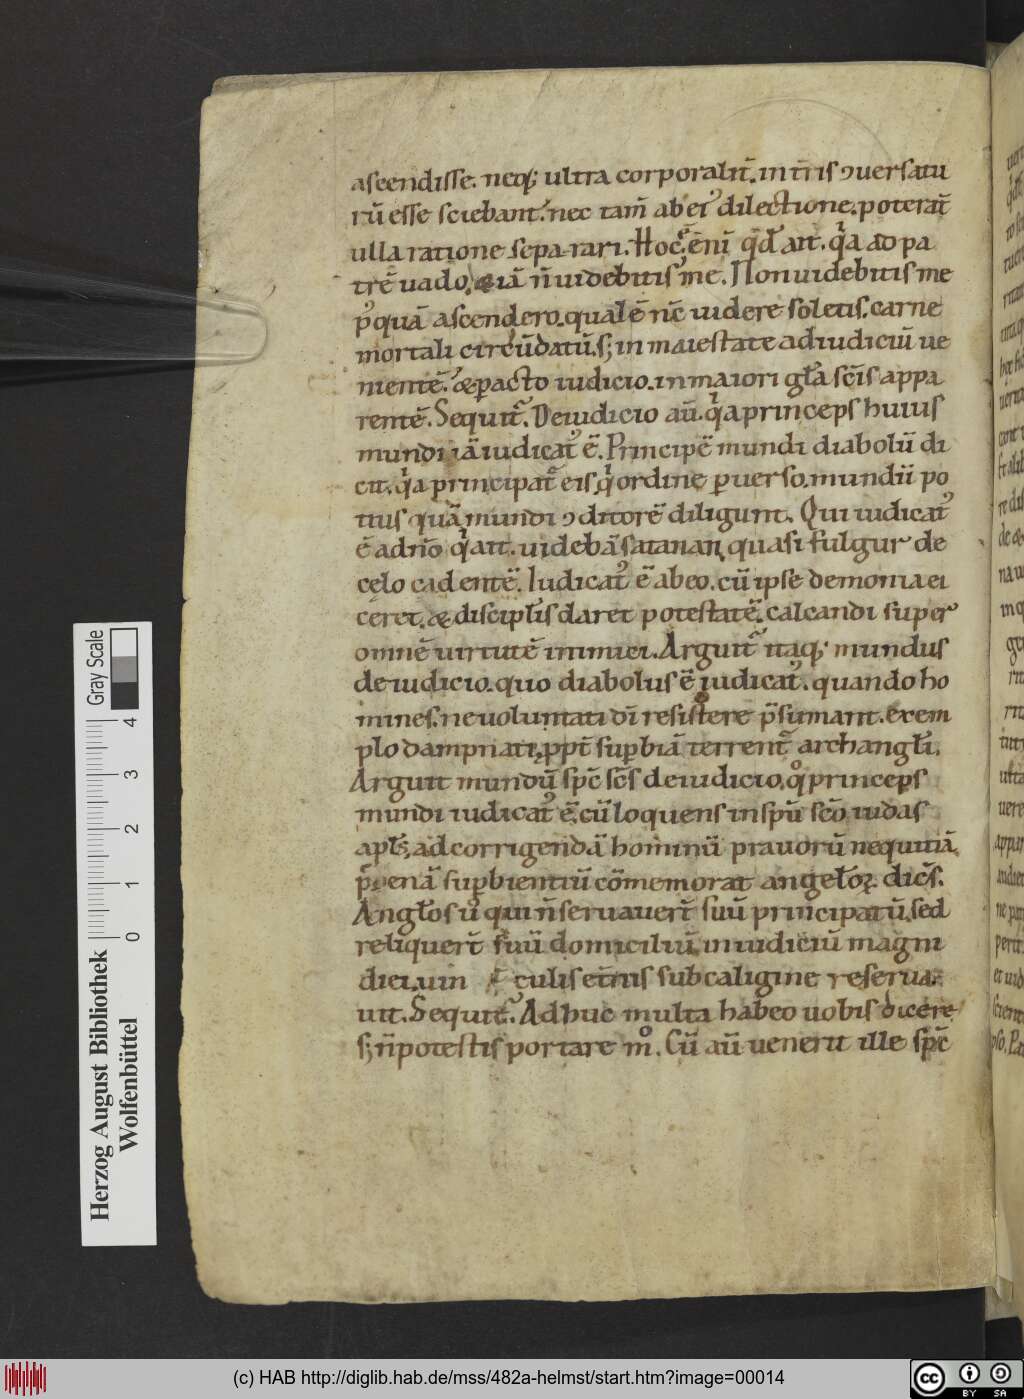 ascendisse. neq; ultra corporalit̄. in t̄ris ɔuersatu
rū esse sciebant. nec tam̄ ab ei᷒ dilectione. poterat̄
ulla ratione separari. Hoc ē enī qd̄ ait. qͥa ad pa
trē uado. & iā n̄ uidebitis me. Non uidebitis me
p᷒quā ascendero. qualē nc̄ uidere soletis. carne
mortali circūdatū. s; in maiestate ad iudiciū ue
nientē. & ꝑacto iudicio. in maiori gl̄a sc̄is appa
rentē. Sequit᷑. De iudicio aū. qͥa princeps huius
mundi iā iudicat᷒ ē. Principē mundi diabolū di
cit. qͥa principat᷑ eis. qͥ ordine ꝑuerso. mundū po
tius quā mundi ɔditorē diligunt. Qui iudicat᷒
ē a dn̄o qͥ ait. uidebā satanan quasi fulgur de
celo cadentē. Iudicat᷒ ē ab eo. cū ipse demonia ei
ceret. & discipl̄is daret potestatē. calcandi super
omnē uirtutē inimici. Arguit᷑ itaq; mundus
de iudicio. quo diabolus ē iudicat᷒. quando ho
mines. ne uoluntati dī resistere p̄sumant. exem
plo dampnati. ꝓpt̄ suꝑbiā terrent᷑ archangl̄i.
Arguit mundū spc̄ sc̄s de iudicio. qͦ princeps
mundi iudicat᷒ ē. cū loquens in spū sc̄o iudas
apl̄s. ad corrigendā hominū prauorū nequitiā.
poenā suꝑbientiū cōmemorat angeloꝝ. dic̄s.
Angl̄os ū qui n̄ seruauer̄t suū principatū. sed
reliquer̄t suū domiciliū. in iudiciū magni
diei. uin culis et̄nis sub caligine reserua
uit. Sequit᷑. Adhuc multa habeo uobis dicere
s; n̄ potestis portare mͦ. Cū aū uenerit ille spc̄
Gray Scale
0 1 2 3 4
Herzog August Bibliothek
Wolfenbüttel
(c) HAB http://diglib.hab.de/mss/482a-helmst/start.htm?image=00014
cc BY SA